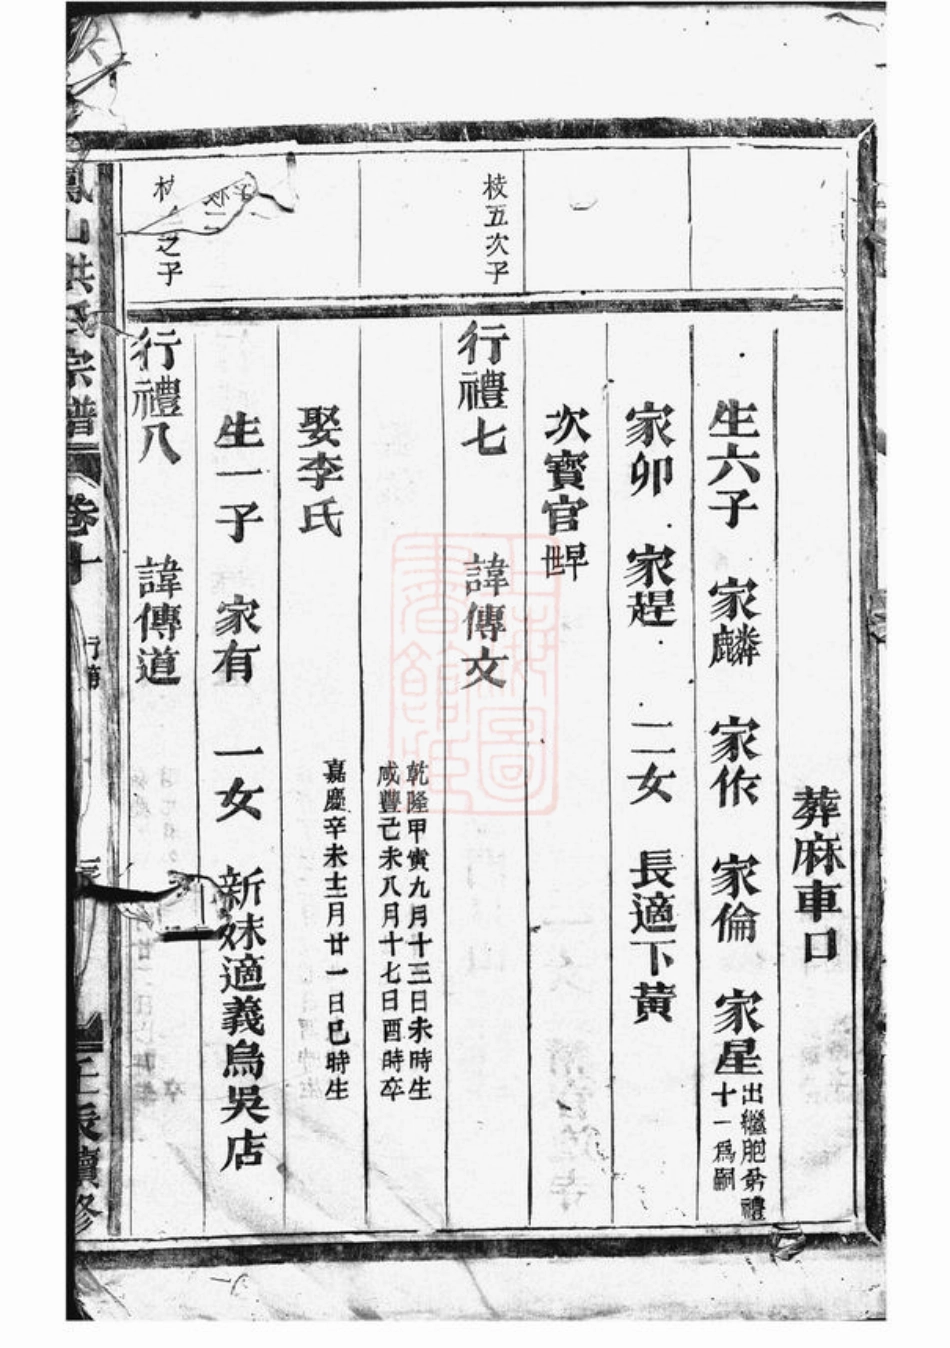 葬麻車口
生六子 家麟 家作 家倫 家星出繼胞弟禮十一為嗣
家卯 家趕 二女 長適下黃
次寶官畈
棱五次子
行禮七 諱傳文
乾隆甲寅九月十三日未時生
咸豐己未八月十七日酉時卒
娶李氏
嘉慶辛未十二月廿一日巳時生
生一子 家有 一女 新妹適義烏吳店
之子
行禮八 諱傳道
鳳山洪氏宗譜 卷十 壬辰續修